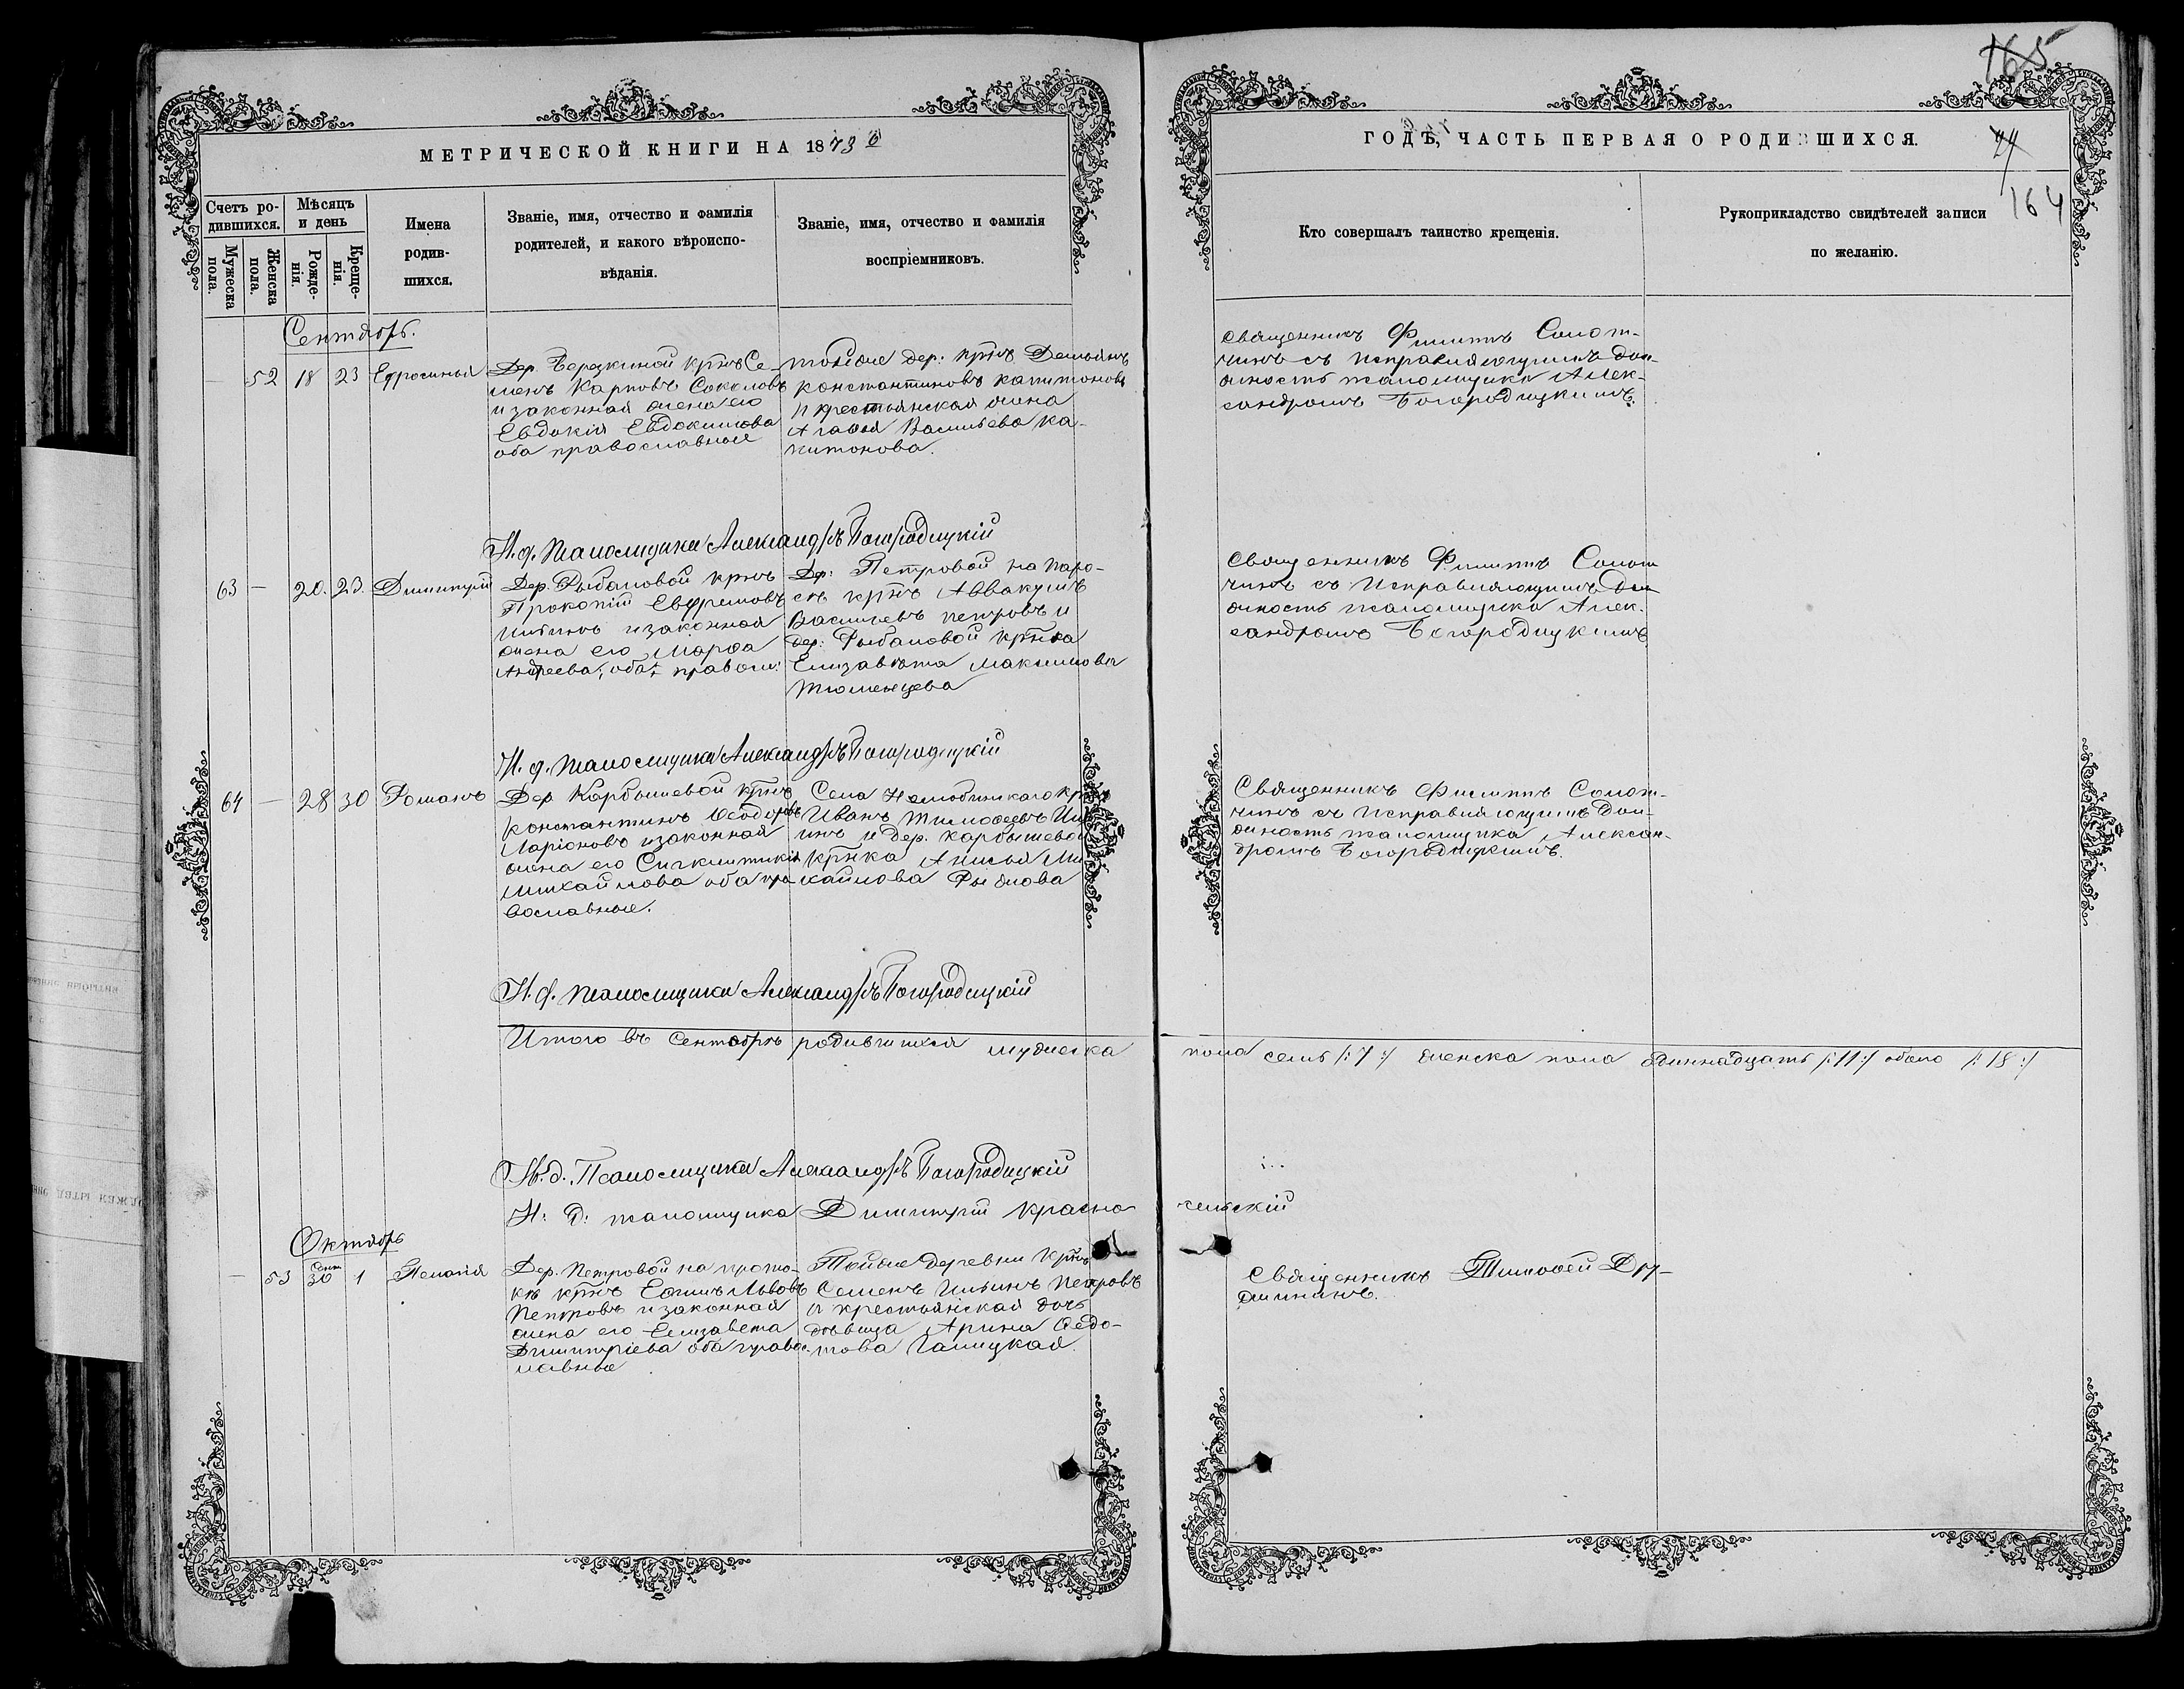 165
МЕТРИЧЕСКОЙ КНИГИ НА 1873
ГОДѢ, ЧАСТЬ ПЕРВАЯ О РОДИВШИХСЯ.
164
Счетъ ро-
дившихся.
Мужеска пола.
Женска пола.
Мѣсяцъ и день
Рожде-
нія.
Креще-
нія.
Имена
родив-
шихся.
Званіе, имя, отчество и фамилія
родителей, и какого вѣроиспо-
вѣданія.
Званіе, имя, отчество и фамилія
воспріемниковъ.
Кто совершалъ таинство крещенія.
Рукоприкладство свидѣтелей записи
по желанію.
Сентябрь.
— 52 18 23
Дер. Березкиной крнъ Се-
менъ Карповъ Соколовъ
и законная жена его
Евдокія Евдокимова
оба православные
тойже дер: крнъ Демьянъ
Константиновъ Капитоновъ
и крестьянская жена
Васильева Ка-
питонова.
Священникъ Филиппъ Солот-
чинъ съ исправляющимъ дол-
жность псаломщика Алек-
сандромъ Богородицкимъ.
И. д. Псаломщика Александръ Богородицкій
63 — 20. 23. Димитрій
Дер. Рыбаловой крнъ
Прокопій Евфремовъ
Ильинъ и законная
жена его Марѳа
Андреева, оба правосл:
Др: Петровой на
крнъ Аввакумъ
Василіевъ Петровъ и
дер: Рыбаловой крнка
Елизавета Максимова
Тюменцева
Священникъ Филиппъ Солот
чинъ съ Исправляющимъ дол
жность псаломщика Алек-
сандромъ Богородицкимъ
И. д. Псаломщика Александръ Богородицкій
64 — 28 30 Романъ
Дер. Карбышевой крнъ
Константинъ Ѳеодоровъ
Ларіоновъ и законная
жена его
Михайлова оба пра
вославные.
Села Нелюбинскаго
Иванъ Тимоѳеевъ
инъ и дер. Карбышевой
крнка Анисья Ми
хайлова Рыжова
Священникъ Филиппъ Солот-
чинъ съ исправляющимъ дол-
жность псаломщика Алексан-
дромъ Богородицкимъ.
И. д. Псаломщика Александръ Богородицкій
Итого въ Сентябрѣ родившихся мужеска пола семь /:7:/ женска пола одиннадцать /:11:/ обоего /:18:/
И. д. Псаломщика Александръ Богородицкій
И: д: псаломщика Димитрій Красносельскій
Октябрь
— 53 Сент 30 1 Пелагія
Дер. Петровой на прото-
кѣ крнъ Ефимъ Львовъ
Петровъ и законная
жена его Елизавета
Димитріева оба правос
лавные
Тойже деревни крнъ
Семенъ Ильинъ Петровъ
и крестьянская дочь
дѣвица Арина Ѳедо-
това Галицкая.
Священникъ Тимоѳей Др-